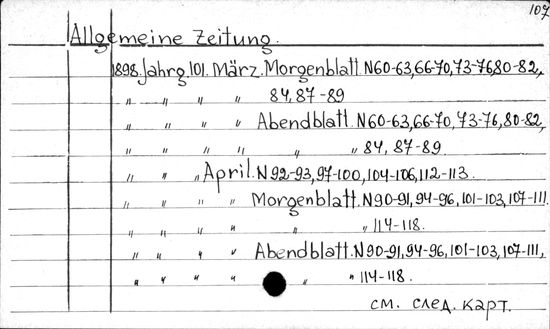 107
Allgemeine Zeitung.
1898. Jahrg. 101. März. Morgenblatt. N60-63,66-70,73-76,80-82,
„ „ „ „ 84,87-89
„ „ „ „ Abendblatt. N60-63,66-70,73-76,80-82,
„ „ „ „ „ „ 84, 87-89.
„ „ „ April. N92-93,97-100,104-106,112-113.
„ „ „ „ Morgenblatt. N90-91,94-96,101-103,107-111.
„ „ „ „ „ „ 114-118.
„ „ „ „ Abendblatt. N90-91,94-96,101-103,107-111,
„ „ „ „ „ „ 114-118.
см. след. карт.